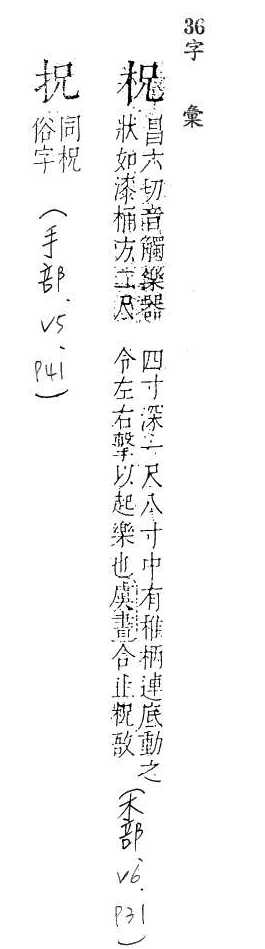 36字 彙
柷
昌六切音觸樂器
狀如漆桶方二尺
四寸深一尺八寸中有椎柄連底動之
令左右擊以起樂也虞書合止柷敔
(木部 v6. P31)
拀
同柷
俗字
(手部. v5. P41)